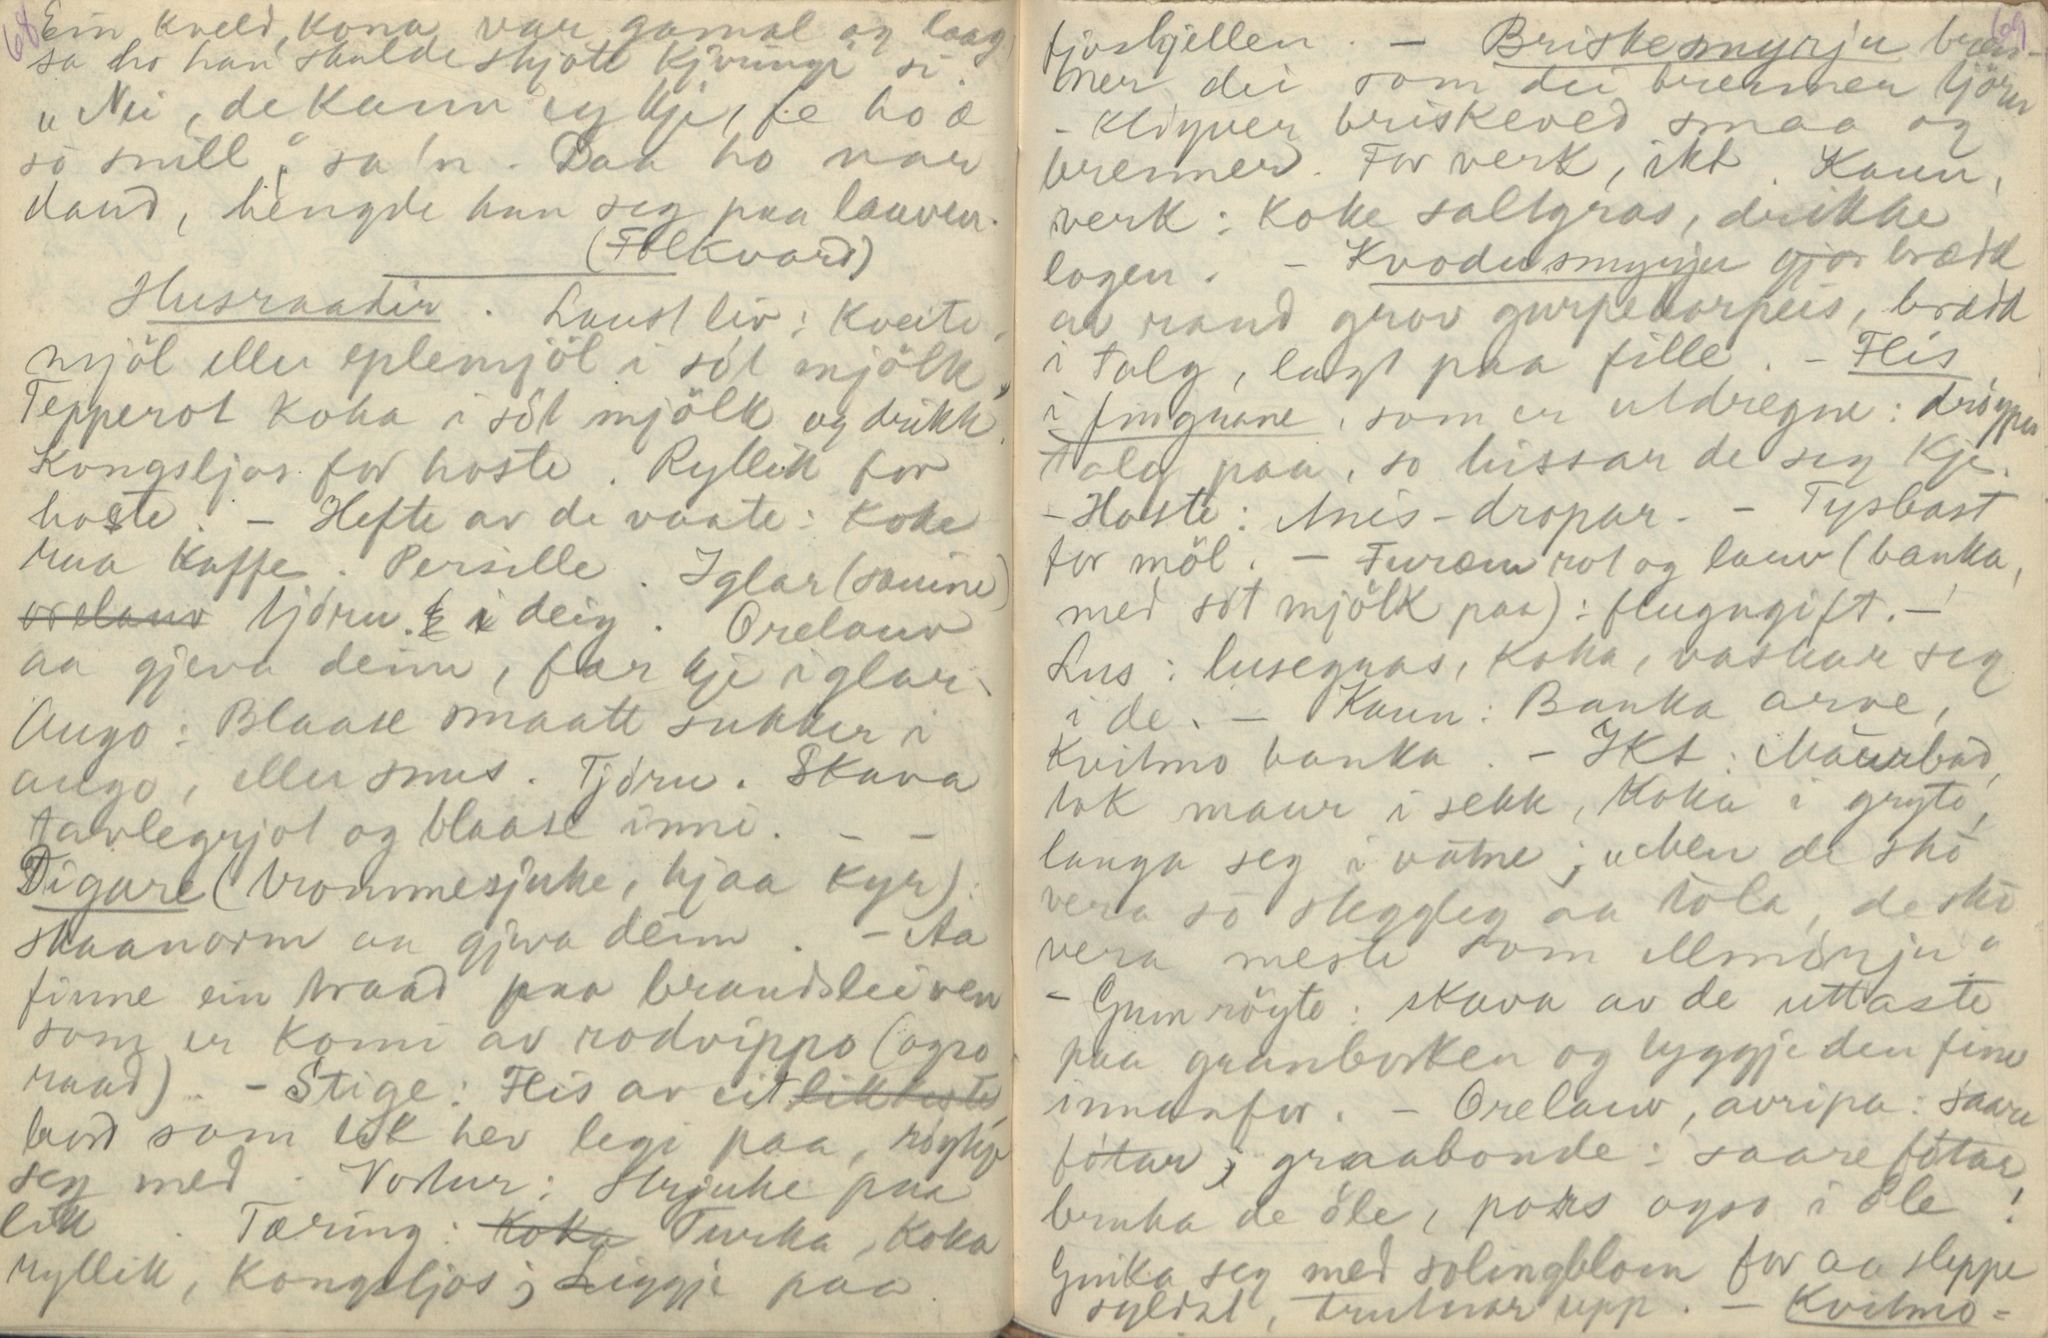 68
Ein kveld, kona var gamal og laag,
sa ho han skulde skjöte kjvinge si.
"Nei, de kann eg kje, fe ho æ
so snill", sa 'n. Daa ho var
daud, hengde han seg paa lauven.
(Folkvard)
Husraadir. Laust liv: Kveite-
mjöl eller eplemjöl i söt mjölk,
Tepperot koka i söt mjölk og drikk.
Kongsljos for hoste. Ryllik for
hoste. - Hefte av de vaate: Koke
rua kaffe. Persille. Iglar (sauine)
orelauv tjöru i deig. Orelauv
aa gjeva deim, fær kje iglar.
Augo: Blaase smaatt sukker i
augo, eller snus. Tjöru. Skava
tavlegrjot og blaase inni. - -
Digare (trommesjuke, hjaa kyr):
skaanorm aa gjeva deim. - Aa
finne ein traad paa brandsleiven
som er komi av rodvippo (ogso
raad). - Stige: Flis av eit likkiste
bord som lik hev legi paa, röykje
seg med. Vortur: Strjuke paa
lik. Tæring: Koka Turka, koka
ryllik, kongsljos; Liggje paa
69
fjoshjellen. - Briskesmyrju bren-
ner dei som dei brenner tjöru
- klöyver briskeved smaa og
brenner. For verk, ikt. Kaun,
verk: Koke saltgras, drikke
logen. - Kvodusmyrju gjor brædd
av rand grov gurpekorpeis, brædd
i talg, lagt paa fille. - Flis
i fingrane, som er utdregne: dröyper
talg paa, so hissar de seg kje.
- Hoste: Anis-dropar. - Tysbast
for möl. - Furem rot og lauv (banka,
med söt mjölk paa): flugugift. -
Lus: lusegras, koka, vaskar seg
i de. - Kaun: Banka arve,
Kvitmo banka. - Ikt: Maurbad,
tok maur i sekk, koka i gryto,
lauga seg i vatne; "Men de sko
vera so steggleg aa tola, de sko
vera meste som ellmörju"
- Gum röyte: skava av de uttaste
paa granborken og tyggje den fine
innanfor. - Orelauv, avripa: saare
fötar; graabonde: saare fötar,
bruka de öle, pors ogso i öle!
Gnika seg med solingblom for aa sleppe
syldst, trutnar upp. - Kvitmo-